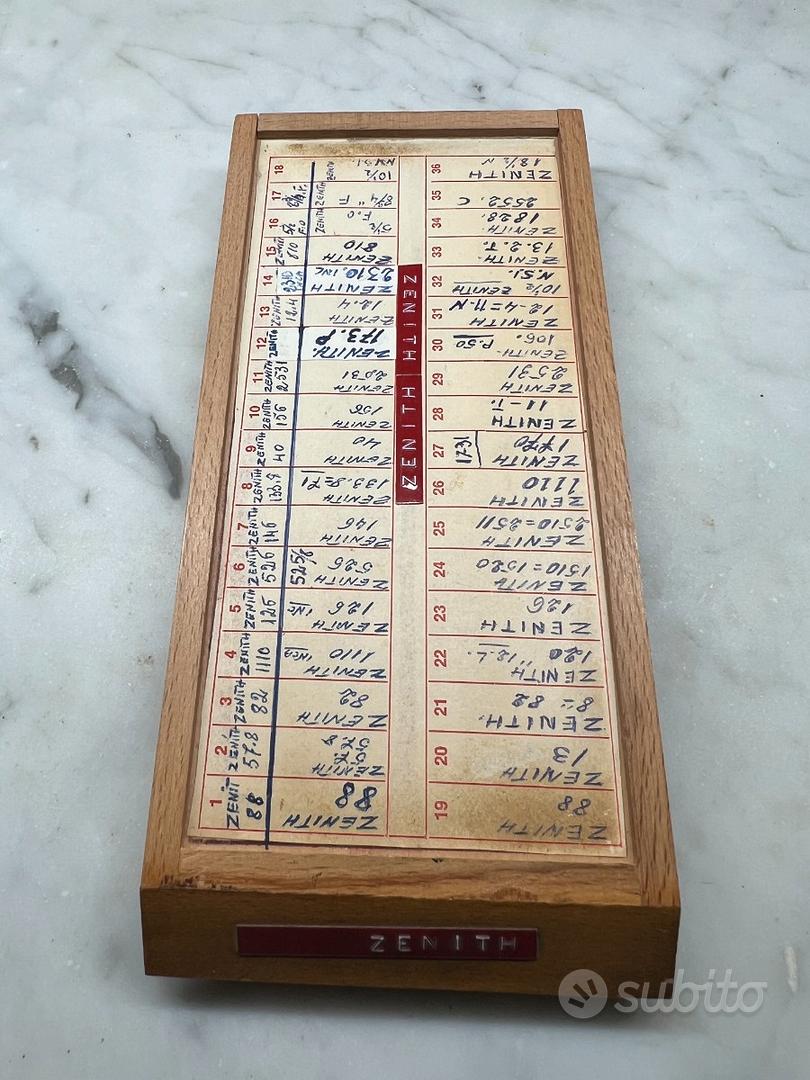 1
ZENIT
88
ZENITH
88
2
ZENITH
57.8
ZENITH
3
ZENITH
82
ZENITH
82
4
ZENITH
1110
ZENITH
1110
5
ZENITH
126
ZENITH
126
6
ZENITH
526
525/6
ZENITH
526
7
ZENITH
146
ZENITH
146
8
ZENITH
133.8
ZENITH
9
ZENITH
40
ZENITH
40
10
ZENITH
156
ZENITH
156
11
ZENITH
2531
ZENITH
2531
12
ZENITH
ZENITH.
173.P
13
ZENITH
12.4
ZENITH
12.4
14
ZENITH
2310
ZENITH
2310. INC
15
ZENITH
810
ZENITH
810
16
5/2
F.O
ZENITH
5½
F.O
17
ZENITH
8¾ " F
18
ZENITH
10½
N.S.I.
ZENITH ZENITH
19
ZENITH
88
20
ZENITH
13
21
ZENITH.
8= 82
22
ZENITH
120 "12.L.
23
ZENITH
126
24
ZENITH
1510=1520
25
ZENITH
2510=2511
26
ZENITH
1110
27
ZENITH
1731
28
ZENITH
11-T.
29
ZENITH
2531
30
ZENITH-
106. P.50
31
ZENITH
12-4=11-N
32
10½ ZENITH
N.S.I.
33
ZENITH.
13.2.T.
34
ZENITH.
1828.
35
2552. C
36
ZENITH
18½ N
ZENITH
subito